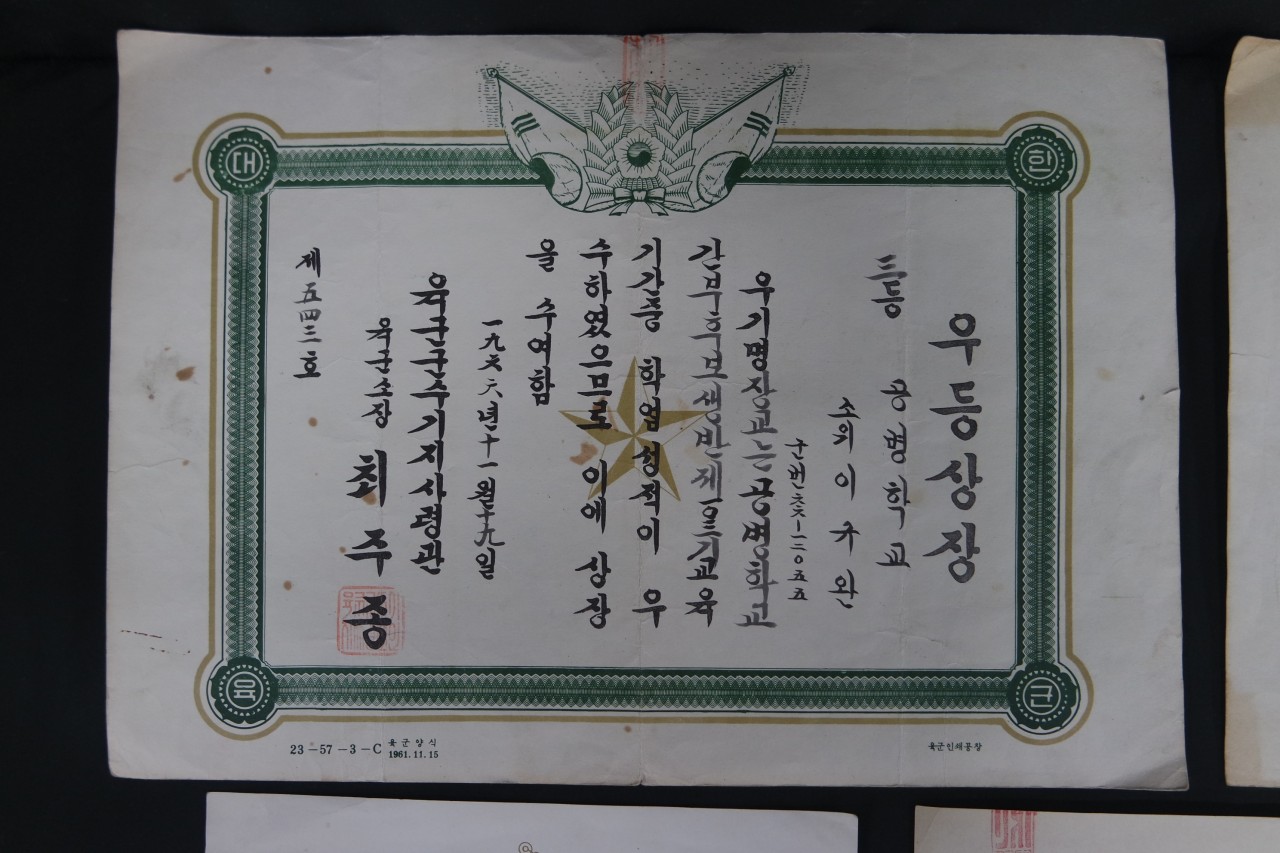 대 한
육 군
우등상장
三등 공병학교
소위 이규완
군번
우기명장교는 공병학교
간부후보생반제 기교육
기간중 학업성적이 우
수하였으므로 이에 상장
을 수여함
一九六六년十一월十九일
육군군수기지사령관
육군소장 최주종
제五四三호
23-57-3-C 육군양식
1961.11.15
육군인쇄공창